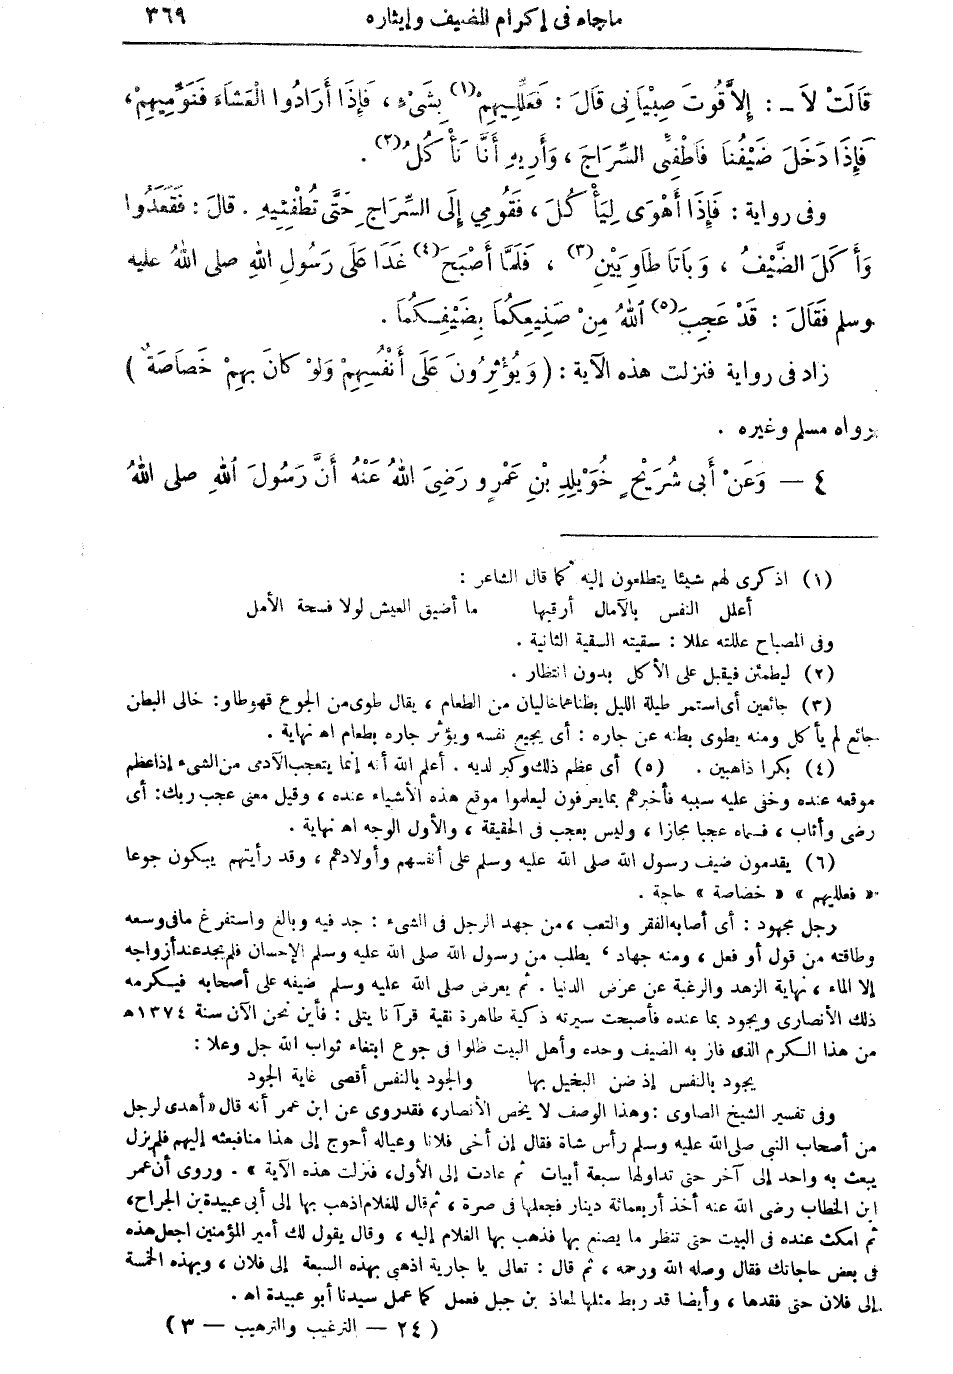 ماجاء فى إكرام الضيف وإيثاره ٣٦٩
قَالَتْ لاَ ــ : إِلاَّ قُوتَ صِبْيَانِى قَالَ : فَعَلِّلِيهِمْ (١) بِشَىْءٍ ، فَإِذَا أَرَادُوا الْعَشَاءَ فَنَوِّمِيهِمْ،
فَإِذَا دَخَلَ ضَيْفُنَا فَأَطْفِئِى السِّرَاجَ ، وَأَرِيهِ أَنَّا نَأْكُلُ (٢) .
وفى رواية : فَإِذَا أَهْوَى لِيَأْكُلَ ، فَقُومِي إِلَى السِّرَاجِ حَتَّى تُطْفِئِيهِ . قالَ : فَقَعَدُوا
وَأَكَلَ الضَّيْفُ ، وَبَاتَا طَاوِيَيْنِ (٣) ، فَلَمَّا أَصْبَحَ (٤) غَدَا عَلَى رَسُولِ اللهِ صلى اللهُ عليه
وسلم فَقَالَ : قَدْ عَجِبَ (٥) اللهُ مِنْ صَنِيعِكُمَا بِضَيْفِكُمَا .
زاد فى رواية فنزلت هذه الآية : ( وَيُؤْثِرُونَ عَلَى أَنْفُسِهِمْ وَلَوْ كانَ بِهِمْ خَصَاصَةٌ )
رواه مسلم وغيره .
٤ — وَعَنْ أَبِى شُرَيْحٍ خُوَيْلِدِ بْنِ عَمْرٍو رَضِىَ اللهُ عَنْهُ أَنَّ رَسُولَ اللهِ صلى اللهُ
(١) اذكرى لهم شيئا يتطلعون إليه كما قال الشاعر :
أعلل النفس بالآمال أرقبها ما أضيق العيش لولا فسحة الأمل
وفى المصباح عللته عللا : سقيته السقية الثانية .
(٢) ليطمئن فيقبل على الأكل بدون انتظار .
(٣) جائعين أى استمر طيلة الليل بطناهما خاليان من الطعام ، يقال طوى من الجوع فهو طاو: خالى البطن
جائع لم يأكل ومنه يطوى بطنه عن جاره : أى يجيع نفسه ويؤثر جاره بطعام اه نهاية .
(٤) بكرا ذاهبين . (٥) أى عظم ذلك وكبر لديه . أعلم الله أنه إنما يتعجب الآدمى من الشىء إذا عظم
موقعه عنده وخفى عليه سببه فأخبرهم بما يعرفون ليعلموا موقع هذه الأشياء عنده ، وقيل معنى عجب ربك: أى
رضى وأثاب ، فسماه عجبا مجازا ، وليس بعجب فى الحقيقة ، والأول الوجه اه نهاية .
(٦) يقدمون ضيف رسول الله صلى الله عليه وسلم على أنفسهم وأولادهم ، وقد رأيتهم يبكون جوعا
« فعلليهم » « خصاصة » حاجة .
رجل مجهود : أى أصابه الفقر والتعب ، من جهد الرجل فى الشىء : جد فيه وبالغ واستفرغ ما فى وسعه
وطاقته من قول أو فعل ، ومنه جهاد ، يطلب من رسول الله صلى الله عليه وسلم الإحسان فلم يجد عند أزواجه
إلا الماء ، نهاية الزهد والرغبة عن عرض الدنيا . ثم يعرض صلى الله عليه وسلم ضيفه على أصحابه فيكرمه
ذلك الأنصارى ويجود بما عنده فأصبحت سيرته ذكية طاهرة نقية قرآنا يتلى : فأين نحن الآن سنة ١٣٧٤ ه
من هذا الكرم الذى فاز به الضيف وحده وأهل البيت ظلوا فى جوع ابتغاء ثواب الله جل وعلا :
يجود بالنفس إذ ضن البخيل بها والجود بالنفس أقصى غاية الجود
وفى تفسير الشيخ الصاوى : وهذا الوصف لا يخص الأنصار، فقد روى عن ابن عمر أنه قال « أهدى لرجل
من أصحاب النبى صلى الله عليه وسلم رأس شاة فقال إن أخى فلانا وعياله أحوج إلى هذا منا فبعثه إليهم فلم يزل
يبعث به واحد إلى آخر حتى تداولها سبعة أبيات ثم عادت إلى الأول، فنزلت هذه الآية » . وروى أن عمر
ابن الخطاب رضى الله عنه أخذ أربعمائة دينار فجعلها فى صرة ، ثم قال للغلام اذهب بها إلى أبى عبيدة بن الجراح،
ثم امكث عنده فى البيت حتى تنظر ما يصنع بها فذهب بها الغلام إليه ، وقال يقول لك أمير المؤمنين اجعل هذه
فى بعض حاجاتك فقال وصله الله ورحمه ، ثم قال : تعالى يا جارية اذهبى بهذه السبعة إلى فلان ، وبهذه الخمسة
إلى فلان حتى نفدها ، وأيضا قد ربط مثلها لمعاذ بن جبل ففعل كما عمل سيدنا أبو عبيدة اه .
( ٢٤ — الترغيب والترهيب — ٣ )